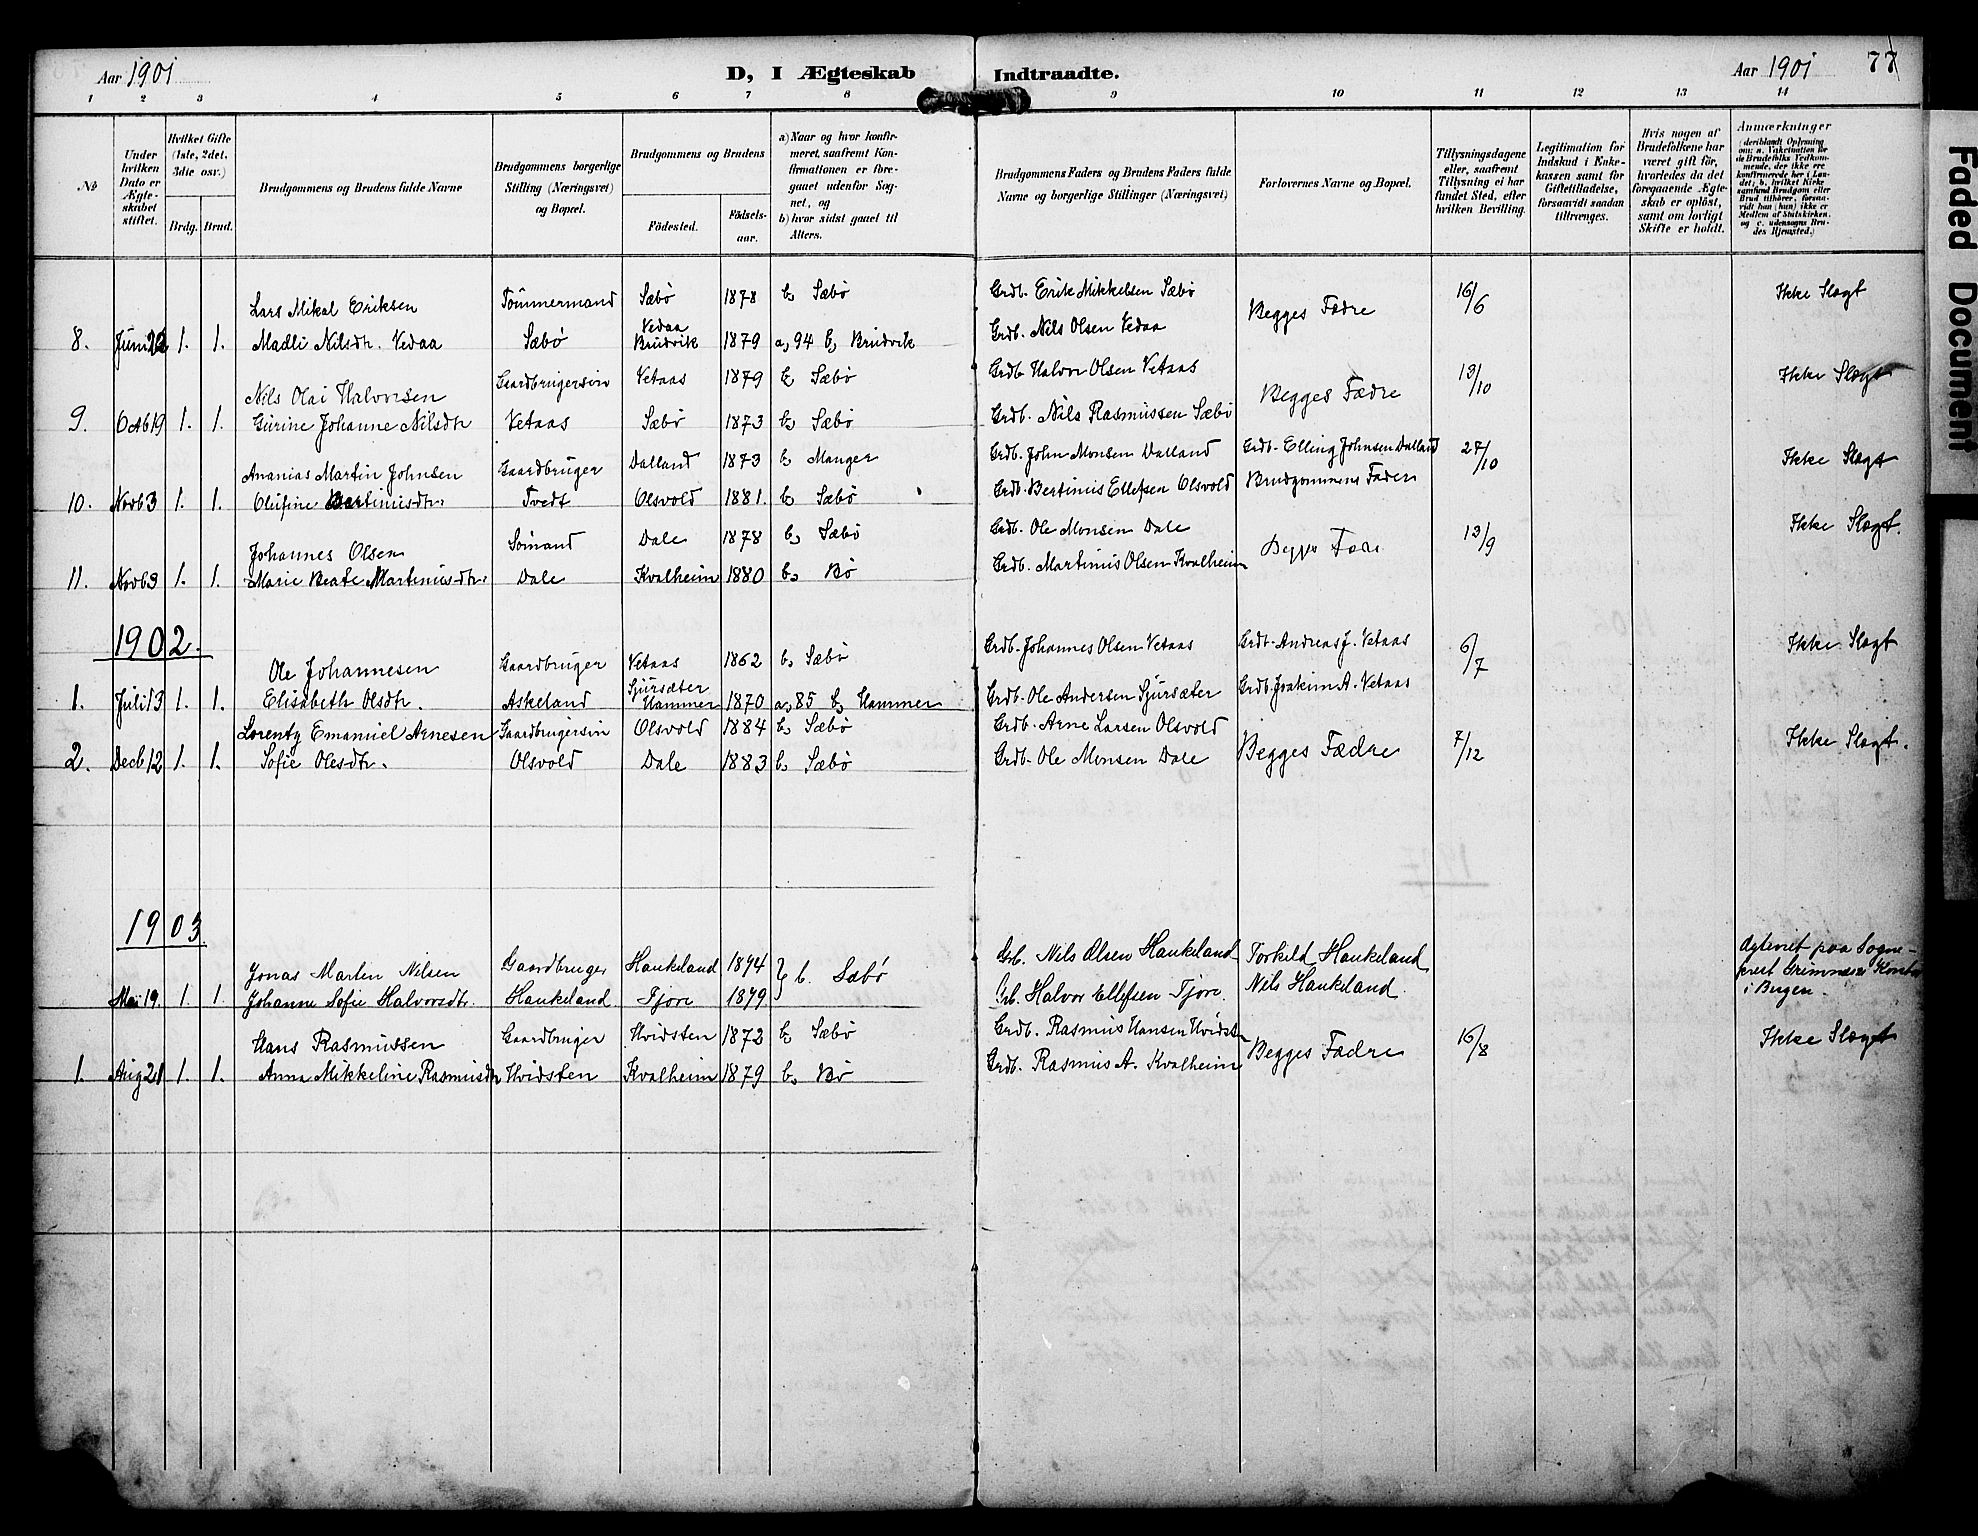 Aar 1901
D, I Ægteskab Indtraadte.
Aar 1901
77
1 2 3 4 5 6 7 8 9 10 11 12 13 14
No
Under hvilken Dato er Ægteskabet stiftet.
Hvilket Gifte (1ste, 2det, 3die osv.)
Brdg. Brud.
Brudgommens og Brudens fulde Navne
Brudgommens borgerlige Stilling (Næringsvei) og Bopæl.
Brudgommens og Brudens
Fødested.
Fødselsaar.
a) Naar og hvor konfirmeret, saafremt Konfirmationen er foregaaet udenfor Sognet, og
b) hvor sidst gaaet til Alters.
Brudgommens Faders og Brudens Faders fulde Navne og borgerlige Stillinger (Næringsvei)
Forlovernes Navne og Bopæl.
Tillysningsdagene eller, saafremt Tillysning ei har fundet Sted, efter hvilken Bevilling.
Legitimation for Indskud i Enkekassen samt for Giftetilladelse, forsaavidt saadan tiltrænges.
Hvis nogen af Brudefolkene har været gift før, hvorledes da det foregaaende Ægteskab er opløst, samt om lovligt Skifte er holdt.
Anmærkninger
Lars Mikal Eriksen Tömmermand Sæbø 1878 b, Sæbø Grdb. Erik Mikkelsen Sæbø Begges Fædre 16/6 Ikke Slægt
8. Juni 22 1. 1. Madli Nilsdtr. Vedaa Sæbø Vedaa Brudvik 1879 a, 94 b, Brudvik Grdb. Nils Olsen Vedaa
Nils Olai Halvorsen Gaardbrugersøn Vetaas 1879 b, Sæbø Grdb Halvor Olsen Vetaas Begges Fædre 13/10 Ikke Slægt
9. Octb 19 1. 1. Gurine Johanne Nilsdtr Vetaas Sæbø 1873 b, Sæbø Grdb. Nils Rasmussen Sæbø
Ananias Martin Johnsen Gaardbruger Dalland 1873 b, Manger Grdb. John Monsen Dalland Grdb. Elling Johnsen Dalland 27/10 Ikke Slægt
10. Novb 3 1. 1. Olufine Bertinusdtr. Tvedt Olsvold 1881. b, Sæbø Grdb. Bertinus Ellefsen Olsvold Brudgommens Fader
Johannes Olsen Sömand Dale 1878 b, Sæbø Grdb. Ole Monsen Dale Begges Fædre 13/9 Ikke Slægt.
11. Novb 3 1. 1. Marie Beate Martinusdtr. Dale Kvalheim 1880 b, Bø Grdb. Martinus Olsen Kvalheim
1902.
Ole Johannesen Gaardbruger Vetaas 1862 b, Sæbø Grdb. Johannes Olsen Vetaas Grdb. Andreas J. Vetaas 6/7 Ikke Slægt
1. Juli 13 1. 1. Elisabeth Olsdtr. Askeland Sjursæter Hammer 1870 a, 85 b, Hammer Grdb. Ole Andersen Sjursæter Grdb. Joakim A. Vetaas
Lorentz Emanuel Arnesen Gaardbrugersøn Olsvold 1884 b, Sæbø Grdb. Arne Larsen Olsvold Begges Fædre 7/12 Ikke Slægt.
2. Decb 12 1. 1. Sofie Olesdtr. Olsvold Dale 1883 b, Sæbø Grdb. Ole Monsen Dale
1903.
Jonas Martin Nilsen Gaardbruger Haukeland 1874 } b. Sæbø Grb. Nils Olsen Haukeland Torkild Haukeland
Mai 19. 1. 1. Johanne Sofie Halvorsdtr. Haukeland Tjore 1879 Grb. Halvor Ellefsen Tjore. Nils Haukeland.
Agteviet paa Sogneprest Kontor i Bergen.
Hans Rasmussen Gaardbruger Hvidsten 1872 b, Sæbø Grdb. Rasmus Hansen Hvidsten Begges Fædre 16/8 Ikke Slægt
1. Aug 21 1. 1. Anna Mikkeline Rasmusdtr Hvidsten Kvalheim 1879 b, Bø Grdb. Rasmus A. Kvalheim
Faded Document